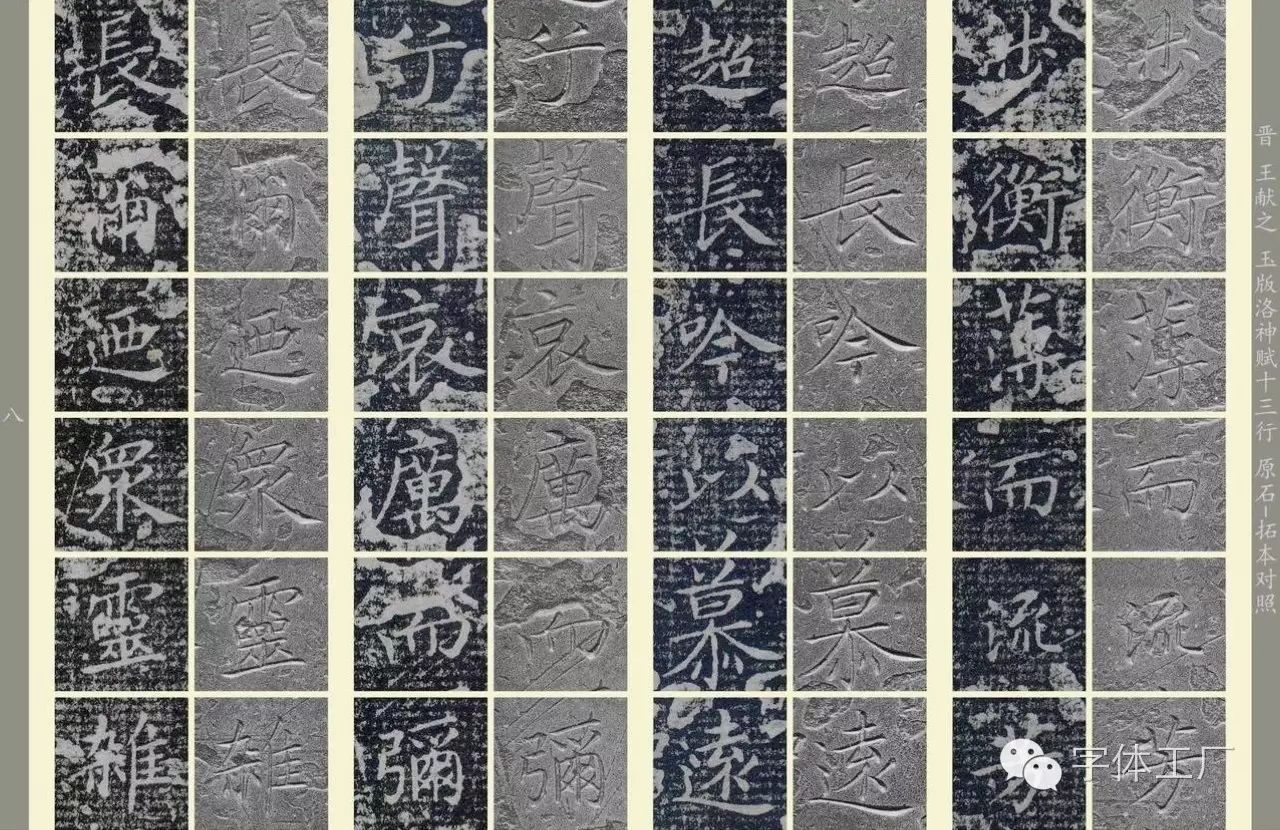 晋 王献之 玉版洛神赋十三行 原石-拓本对照
步衡薄而流芳
步衡薄而流芳
超長吟以慕遠
超長吟以慕遠
兮聲哀厲而彌
兮聲哀厲而彌
長爾迺眾靈雜
長爾迺眾靈雜
八
字体工厂